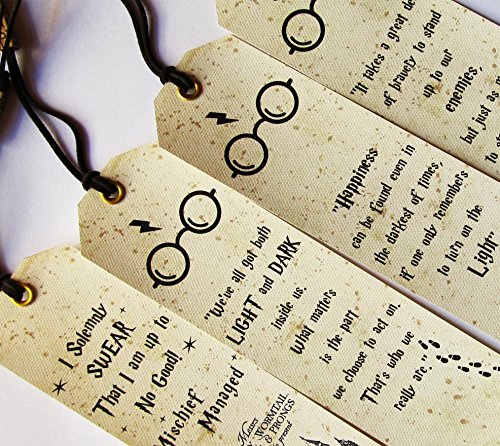 I Solemnly
SWEAR
That I am up to
No Good!
Mischief
Managed
WORMTAIL
& PRONGS
"We've all got both
LIGHT and DARK
inside us.
What matters
is the part
we choose to act on.
That's who we
really are."
"Happiness
can be found even in
the darkest of times,
if one only remembers
to turn on the
Light"
"It takes a great de
of bravely to stand
up to our
enemies,
but just as